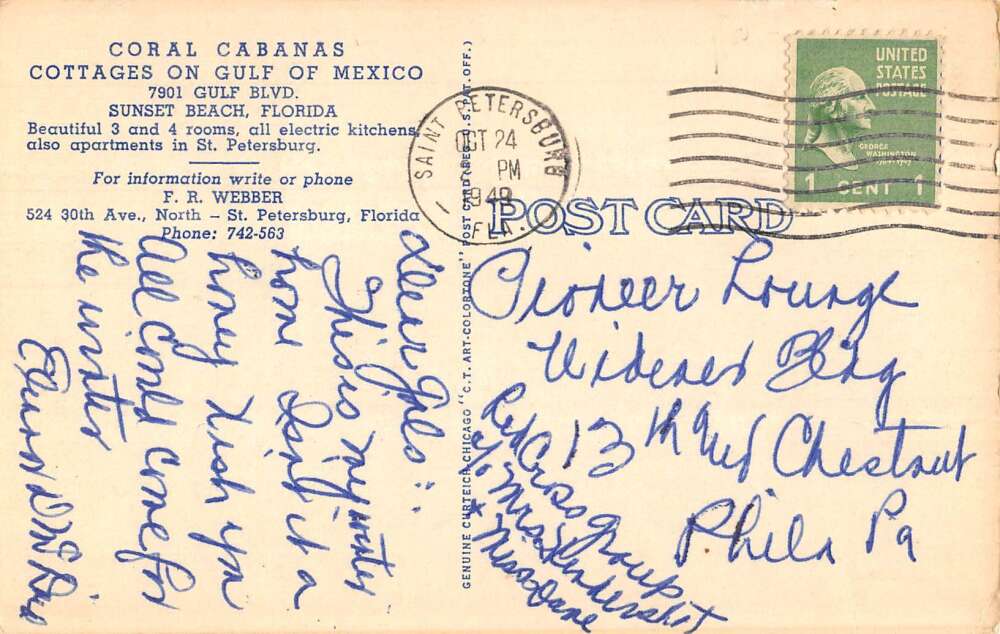 CORAL CABANAS
COTTAGES ON GULF OF MEXICO
7901 GULF BLVD.
SUNSET BEACH, FLORIDA
Beautiful 3 and 4 rooms, all electric kitchens,
also apartments in St. Petersburg.
For information write or phone
F. R. WEBBER
524 30th Ave., North – St. Petersburg, Florida
Phone: 742-563
Dear Girls:
This is my winter
home Isn't it a
honey Wish you
all could come for
the winter
GENUINE CURTEICH, CHICAGO "C.T. ART-COLORTONE" POST CARD (REG. U.S. PAT. OFF.)
SAINT PETERSBURG
OCT 24
PM
1949
FLA.
UNITED
STATES
POSTAGE
GEORGE
WASHINGTON
1 CENT 1
POST CARD
Pioneer Lounge
Widener Bldg
13th and Chestnut
Phila Pa
Red Cross Group
c/o Mrs. Hendershot